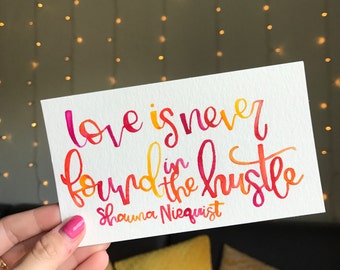 love is never
found in the hustle
Shauna Niequist